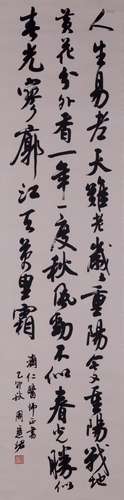 人生易老天難老歲〻重陽今又重陽戰地
黃花分外香一年一度秋風勁不似春光勝似
春光寥廓江天萬里霜
濟仁醫師正書
乙卯秋周慧珺